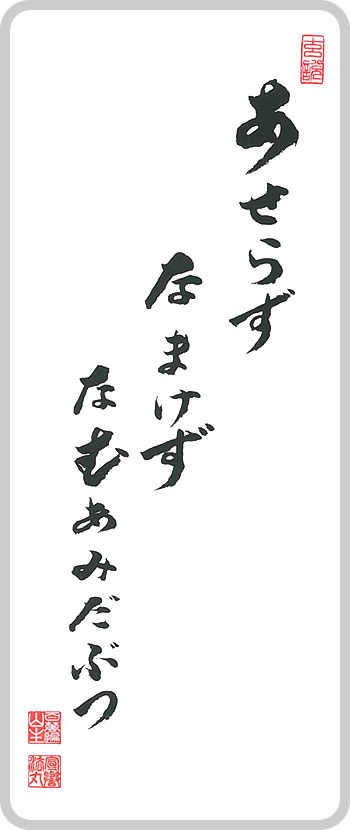 あせらず
なまけず
なむあみだぶつ